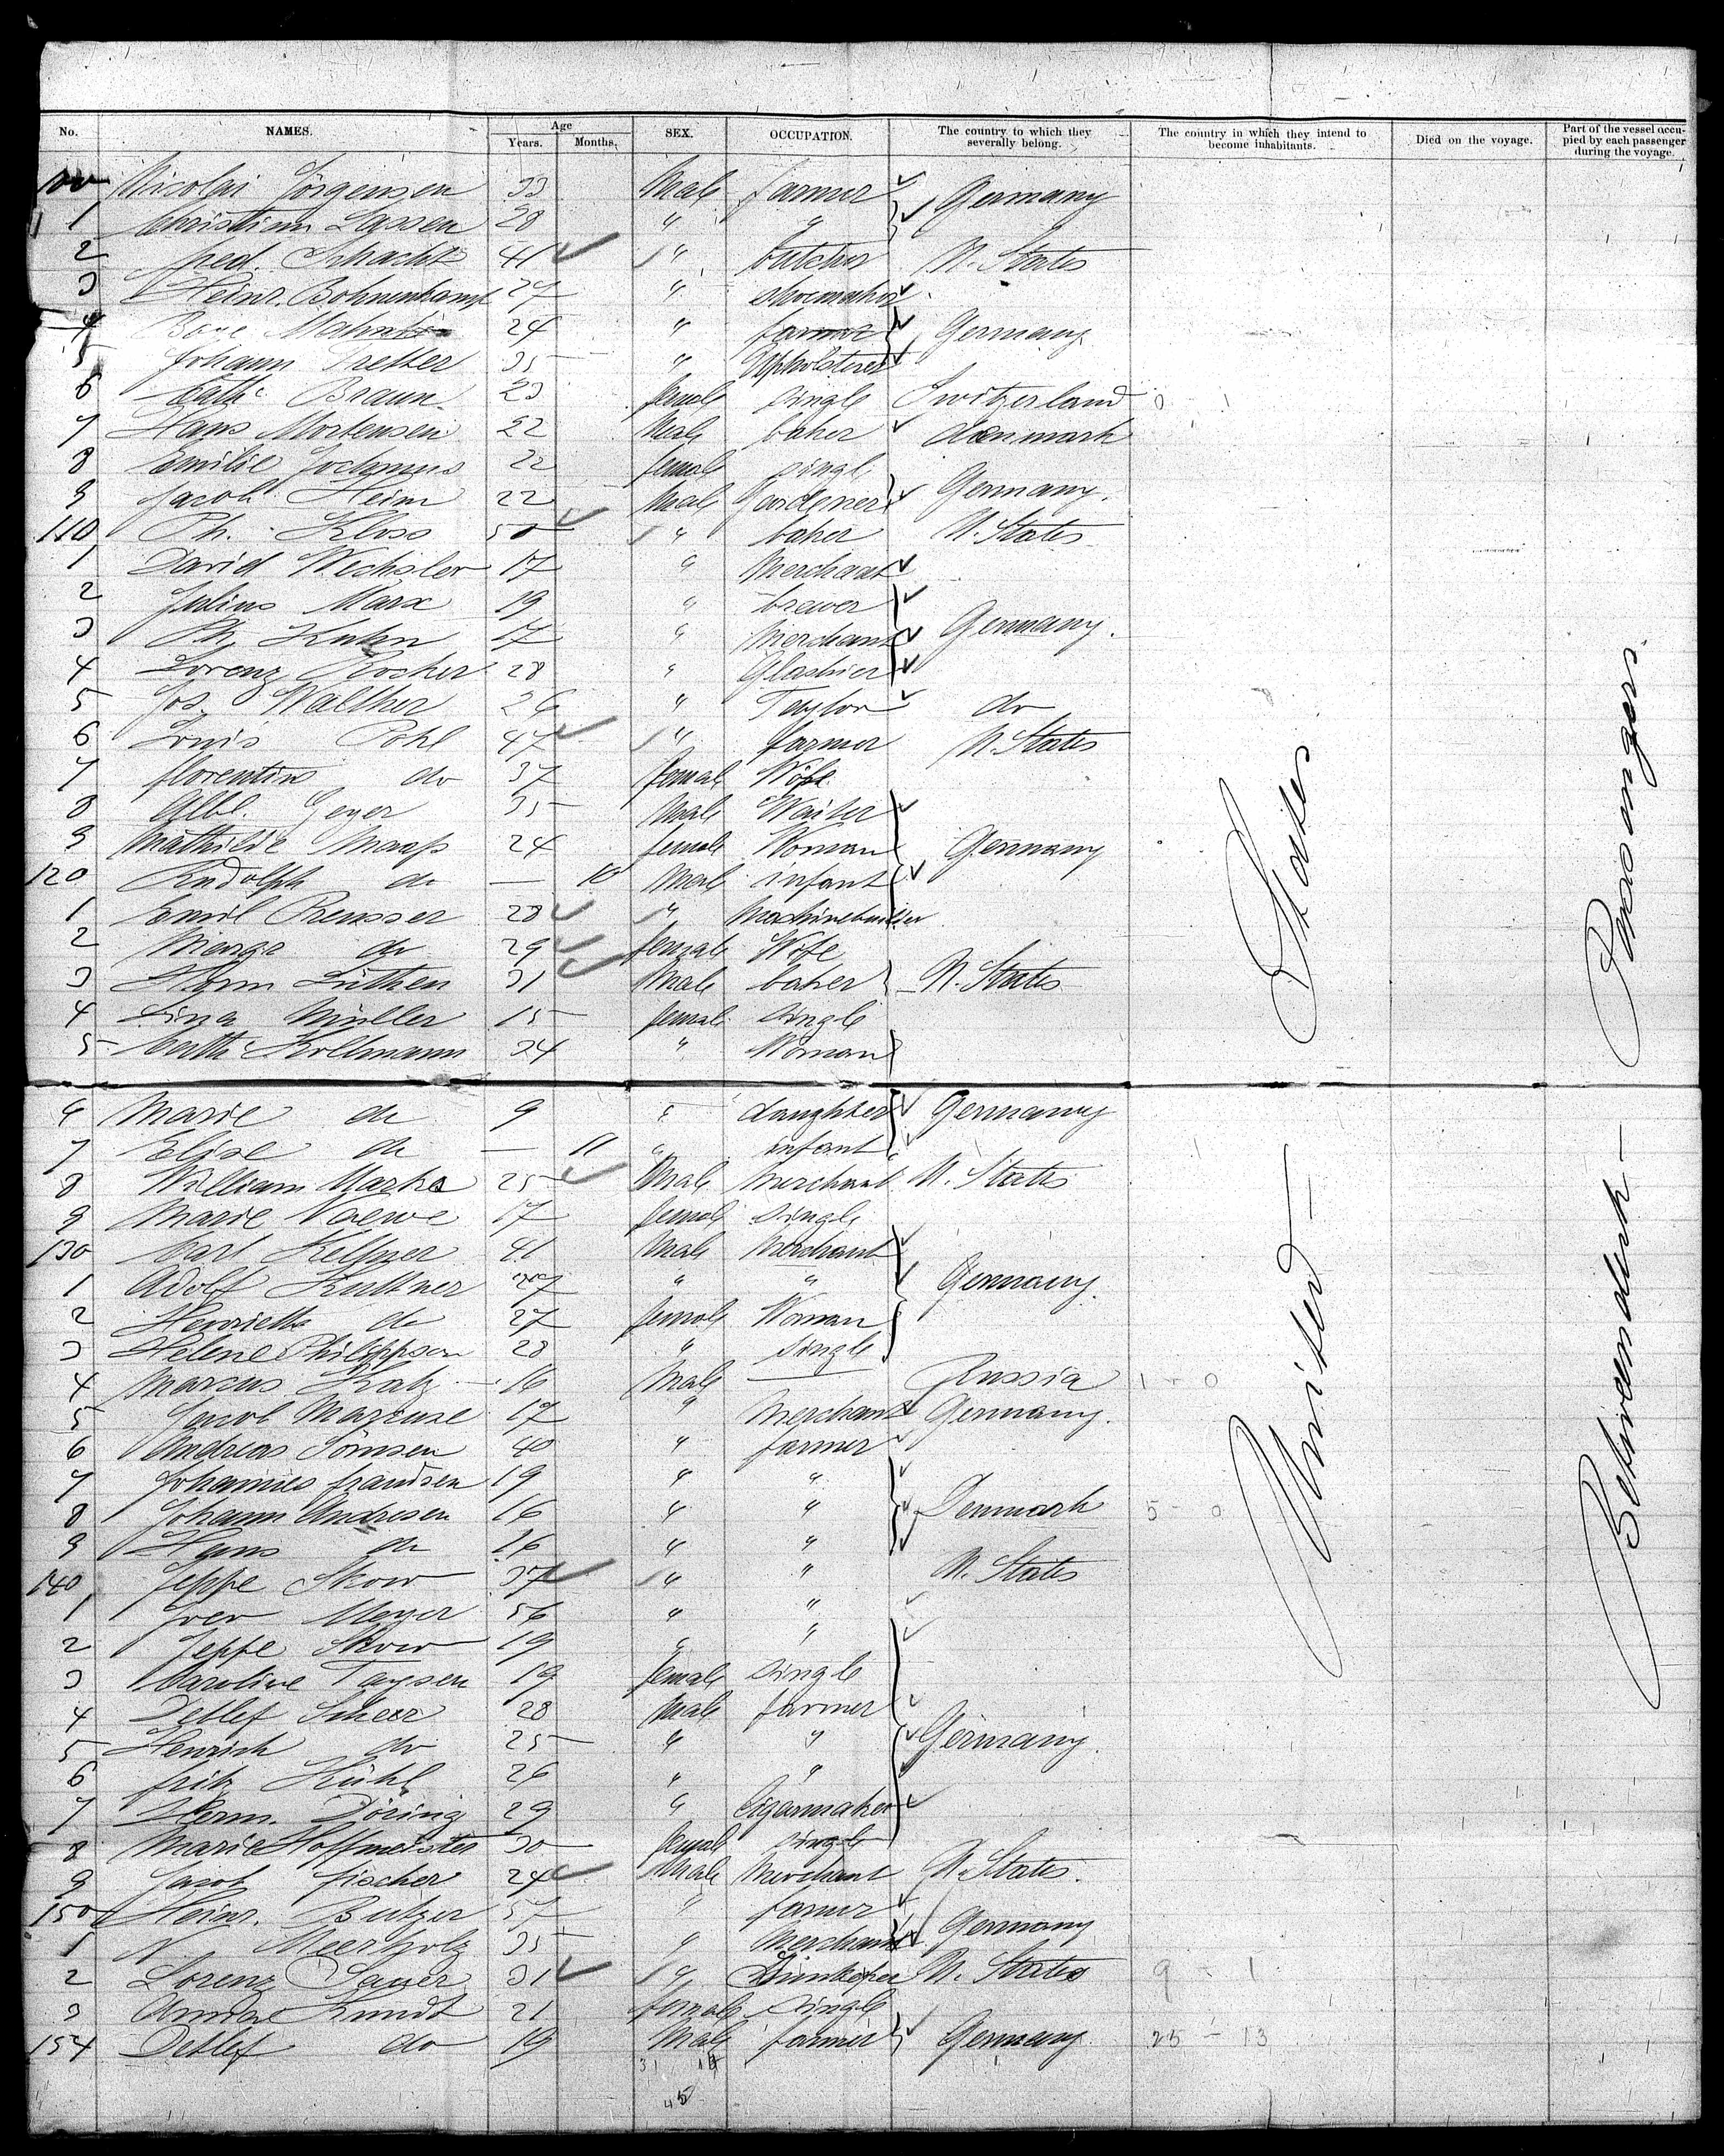 No. NAMES. Age Years. Months. SEX. OCCUPATION. The country to which they severally belong. The country in which they intend to become inhabitants. Died on the voyage. Part of the vessel occupied by each passenger during the voyage.
100 Nicolai Jörgensen 33 Male farmer Germany
1 Christian Lassen 28 " "
2 fred. Schacht 41 " butcher U. States
3 Heinr. Bohnenkamp 27 " shoemaker
4 Boye 24 " farmer Germany
5 Johann Tretter 35 " Upholsterer
6 Cath. Braun 23 female single Switzerland 0 - 1
7 Hans Mortensen 22 Male baker denmark
8 Emilie Jochymus 22 female single
9 Jacob Heim 22 Male Gardener Germany.
110 Ph. Kloss 50 " baker U. States
1 David Wechsler 17 " Merchant
2 Julius Marx 19 " brewer
3 Ph. Kuhn 17 " Merchant Germany.
4 Lorenz Kocher 28 " Glashier
5 Jos. Walther 26 " Taylor do
6 Louis Pohl 47 " farmer U. States
7 florentine do 37 female Wife
8 Albl. Geyer 35 Male Waiter
9 Mathilde Maass 24 female Woman Germany
120 Rudolph do — 10 Male infant
1 Emil Preusser 28 " Mashinebuilder
2 do 29 female Wife
3 Herm Lüthen 31 Male baker U. States
4 Lina Müller 15 female single
5 Cath. Kollmann 34 " Woman
6 Marie do 9 " daughter Germany
7 Elise do — 11 " infant
8 William Marks 25 Male Merchant U. States
9 Marie 17 female single
130 Carl Kellner 41 Male Merchant
1 Adolf Kuttner 27 " " Germany.
2 Henriette do 27 female Woman
3 Helene Philippson 28 " single
4 Marcus Katz 16 Male — Russia 1 - 0
5 Jacob Marcuse 17 " Merchant Germany.
6 Andreas Tömsen 40 " farmer
7 Johannes frandsen 19 " "
8 Johann Andresen 16 " " Denmark 5 - 0
9 Hans do 16 " "
140 Jeppe Skow 37 " " U. States
1 Iver Meyer 56 " "
2 Jeppe Skow 19 " "
3 Caroline Taysen 19 female single
4 Detlef 28 Male farmer
5 Henrich do 25 " " Germany.
6 fritz Kühl 26 " "
7 Herm. Döring 29 " Cigarmaker
8 Marie Hoffmeister 30 female single
9 Jacob fischer 24 Male Merchant U. States.
150 Heinr. Butzer 57 " farmer Germany
1 N. Meerholz 35 " Merchant
2 Lorenz Sauer 31 " U. States 9 - 1
3 Kundt 21 female single
154 Detlef do 19 Male farmer Germany 25 - 13
31 14
45
United States
Betweendeck Passengers